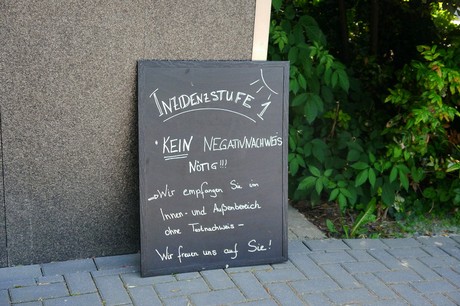 INZIDENZSTUFE 1
• KEIN NEGATIVNACHWEIS
NÖTIG!!!
→ Wir empfangen Sie im
Innen- und Außenbereich
ohne Testnachweis -
Wir freuen uns auf Sie!